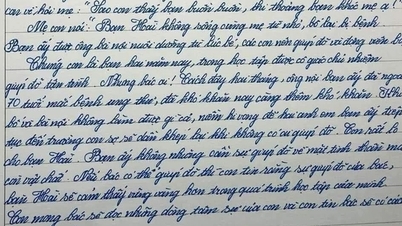 con về hỏi mẹ: " Sao con thấy bạn buồn buồn, thi thoảng bạn khóc mẹ ạ!"
Mẹ con nói: " Bạn Hoài không sống cùng mẹ từ nhỏ, bố lại bị bệnh.
Bạn ấy được ông bà nội nuôi dưỡng từ lúc bé, các con nên giúp đỡ và động viên bạ
Chúng con là bạn hai năm nay, trong học tập được cô giáo chủ nhiệm
giúp đỡ tận tình. Nhưng bác ơi! Cách đây hai tháng, ông nội bạn ấy đã ngoài
70 tuổi mắc bệnh ung thư, đã khó khăn nay càng thêm khó khăn. Khi
bố và bà nội không làm được gì cả, niềm hi vọng để hai anh em bạn ấy tiếp
tục đến trường con sợ sẽ dần khép lại khi không có ai giúp đỡ. Con rất lo
cho bạn Hoài. Bạn ấy không những cần sự giúp đỡ về mặt tinh thần mà
còn vật chất. Nếu bác có thể giúp đỡ thì con tin rằng sự giúp đỡ của bác,
bạn Hoài sẽ cảm thấy vững vàng hơn trong quá trình học tập của mình.
Con mong bác sẽ đọc những dòng tâm sự của con và con tin bác sẽ có các